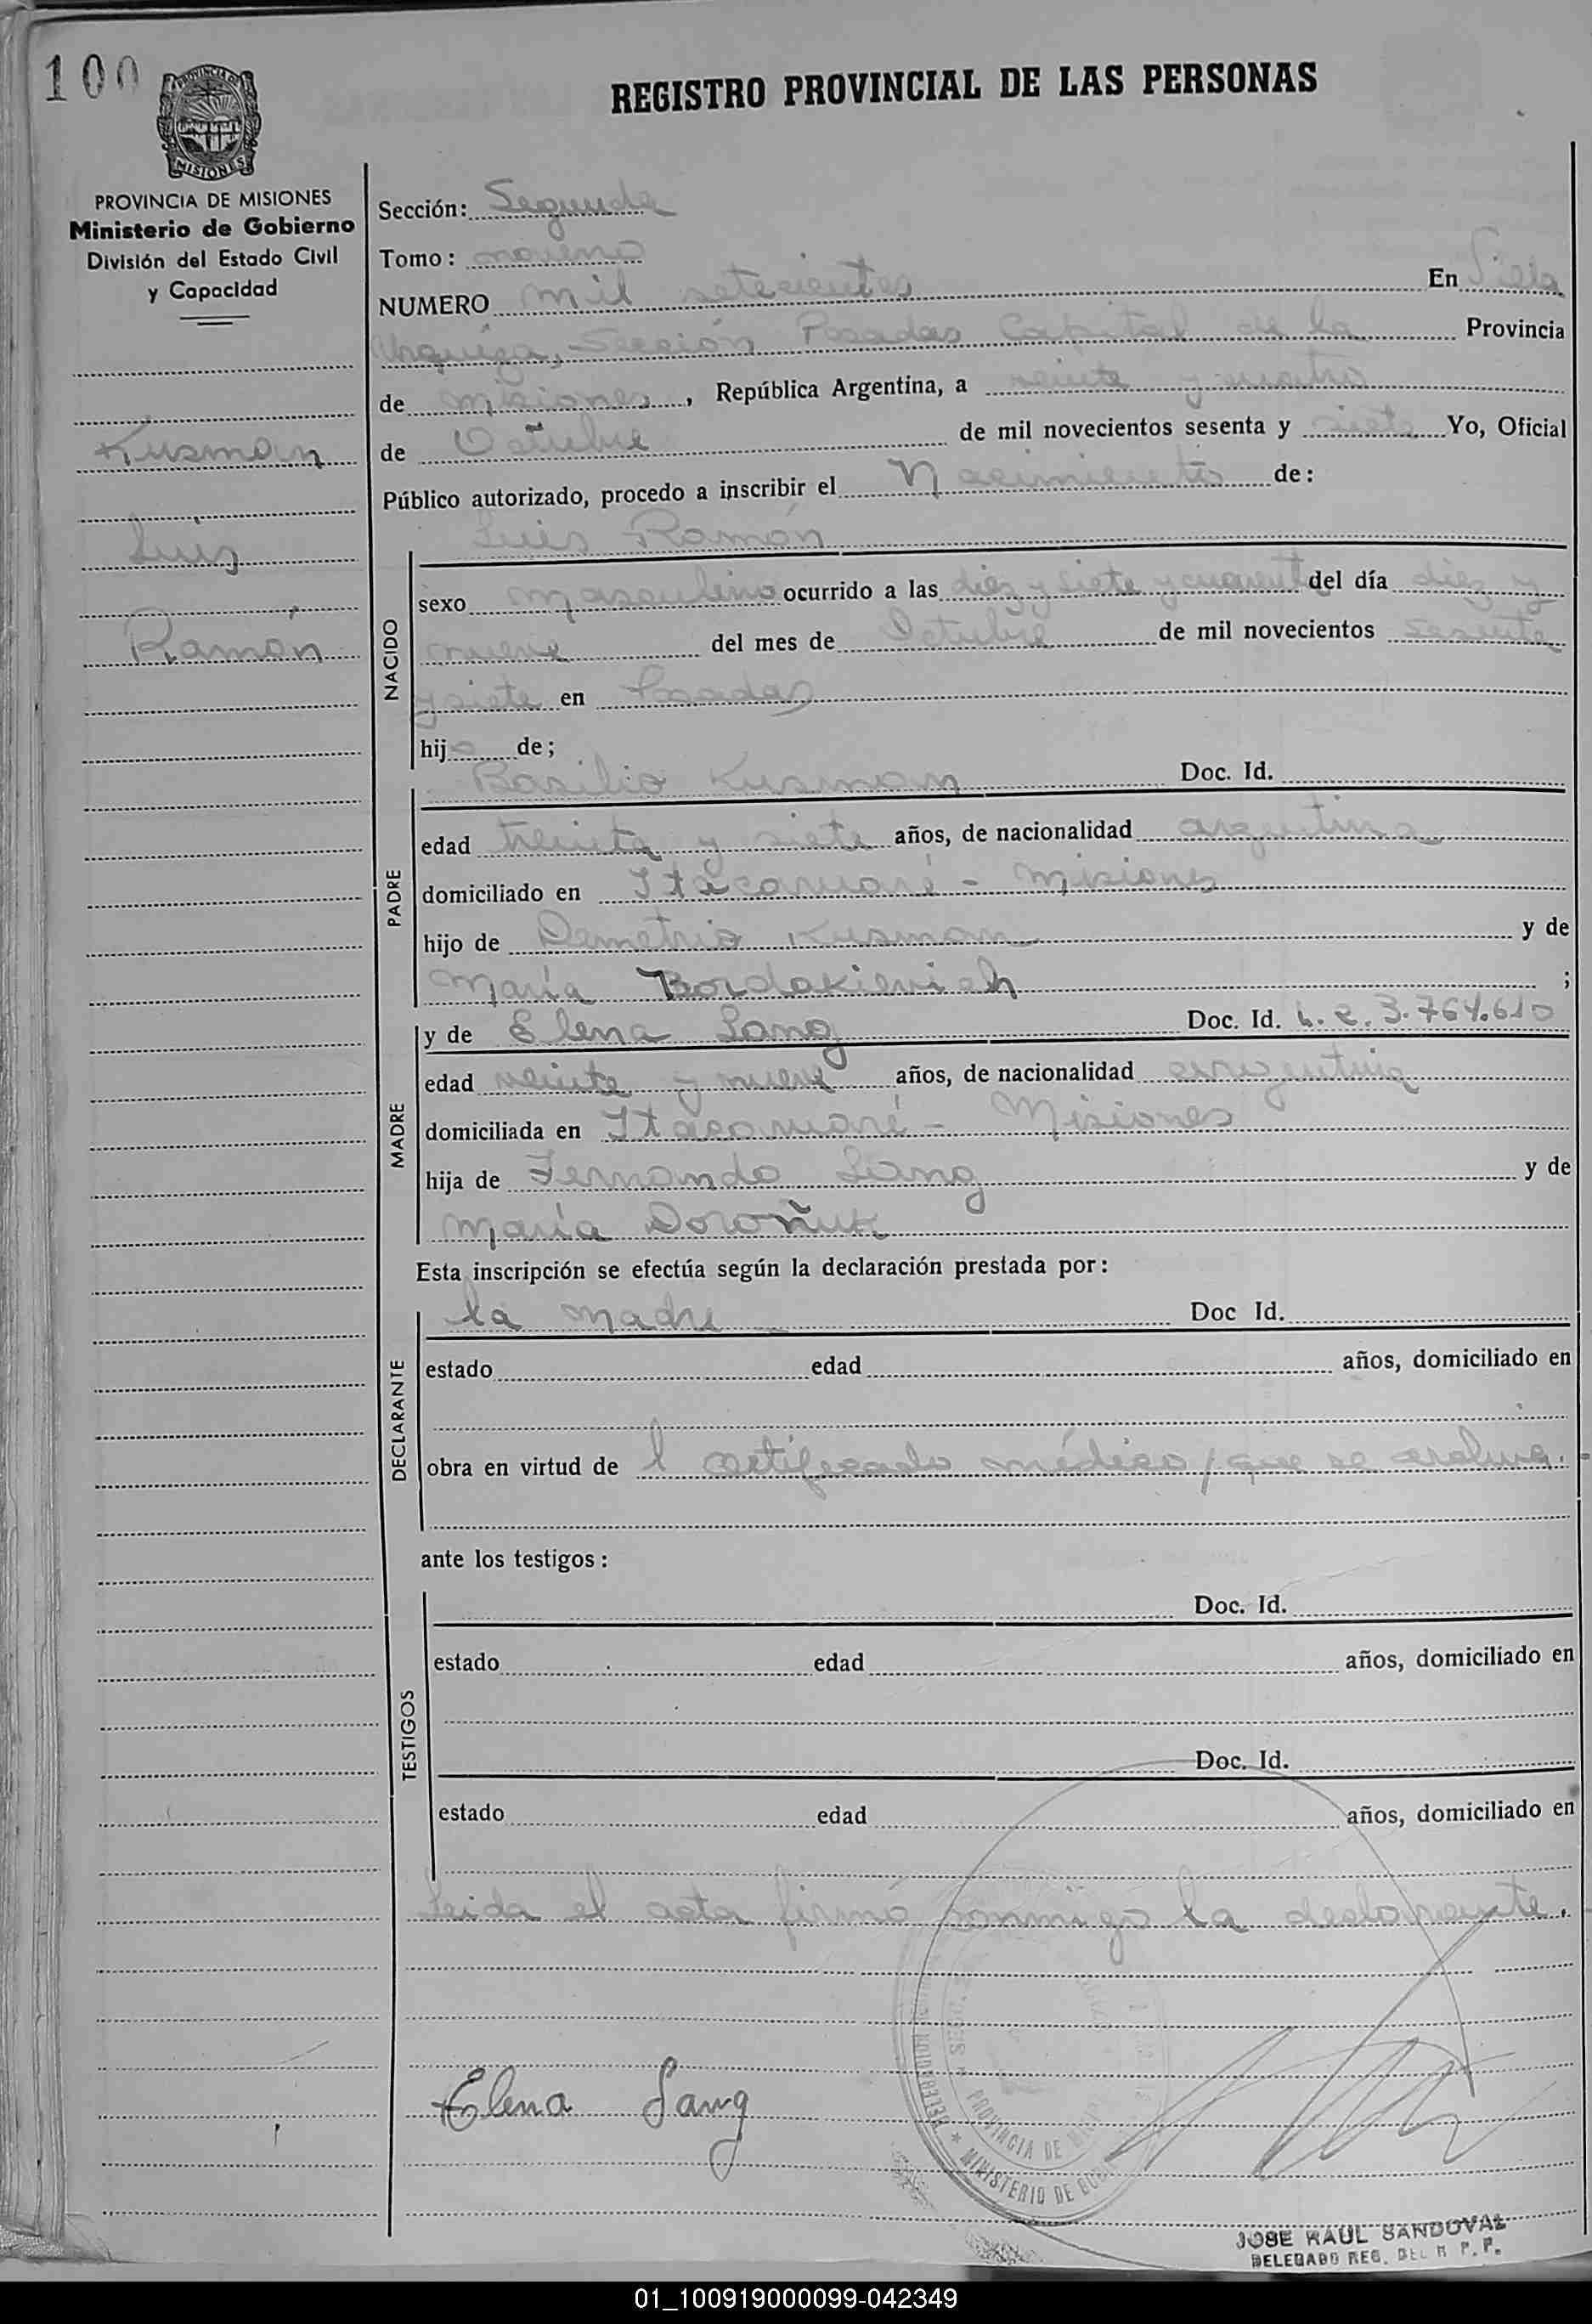 100
PROVINCIA DE
MISIONES
REGISTRO PROVINCIAL DE LAS PERSONAS
PROVINCIA DE MISIONES
Ministerio de Gobierno
División del Estado Civil
y Capacidad
Kusman
Luis
Ramón
Sección: Segunda
Tomo: noveno
NUMERO mil setecientos En Villa
Urquiza, Sección Posadas Capital de la Provincia
de Misiones, República Argentina, a veinte y cuatro
de Octubre de mil novecientos sesenta y siete Yo, Oficial
Público autorizado, procedo a inscribir el Nacimiento de:
Luis Ramón
NACIDO
sexo masculino ocurrido a las diez y siete y cuarenta del día diez y
nueve del mes de Octubre de mil novecientos sesenta
y siete en Posadas
hijo de;
Basilio Kusman Doc. Id.
PADRE
edad treinta y siete años, de nacionalidad argentina
domiciliado en Itacaruaré - Misiones
hijo de Demetrio Kusman y de
María Bordakievich ;
MADRE
y de Elena Lang Doc. Id. L. C. 3.764.610
edad veinte y nueve años, de nacionalidad argentina
domiciliada en Itacaruaré - Misiones
hija de Fernando Lang y de
María Doroñuk
Esta inscripción se efectúa según la declaración prestada por:
DECLARANTE
la madre Doc Id.
estado edad años, domiciliado en
obra en virtud de l certificado médico, que se archiva.
ante los testigos:
TESTIGOS
Doc. Id.
estado edad años, domiciliado en
Doc. Id.
estado edad años, domiciliado en
Leida el acta firmó conmigo la declarante.
Elena Lang
PROVINCIA DE
MINISTERIO DE
JOSE RAUL SANDOVAL
DELEGADO REG. DEL R P. P.
01_100919000099-042349